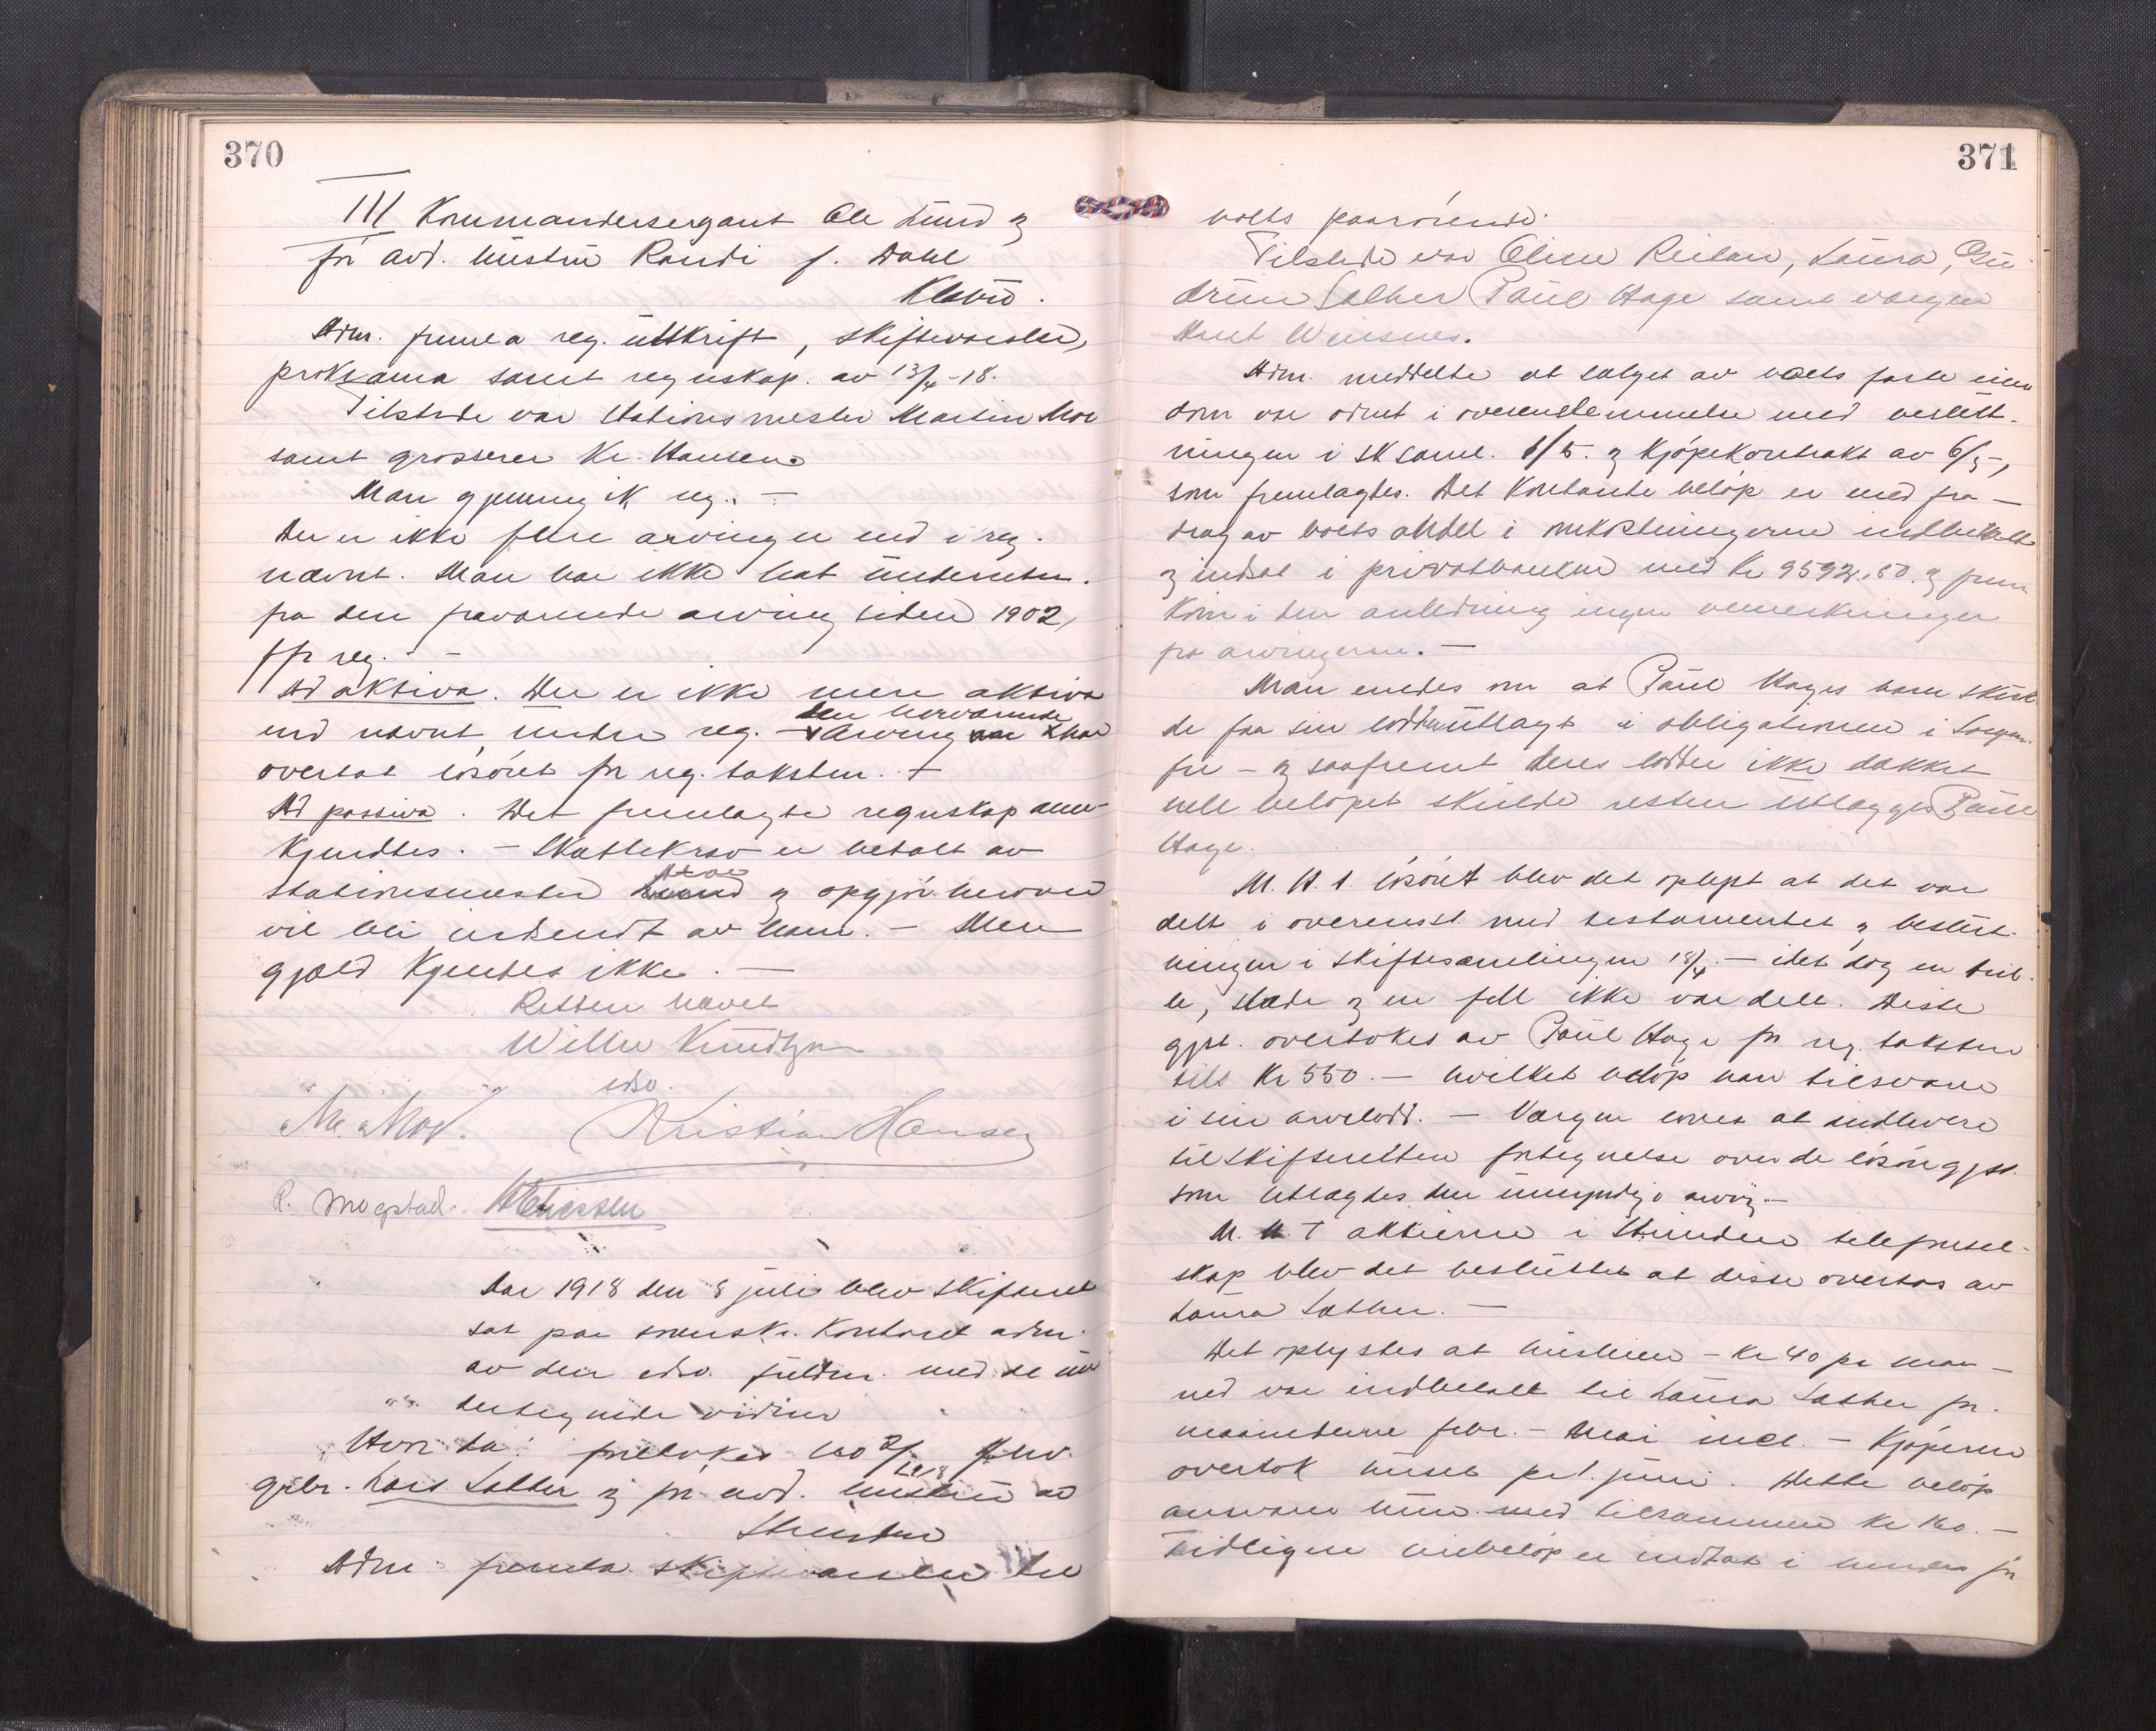 370
III Kommandersergant Ole Lund og
for avd. hustru Randi f. Dahl
Klæbu.
Adm. fremla reg. utskrift, skiftevarsler,
proklama samt regnskap av 13/4-18.
Tilstede var Stationsmester Martin Moe
samt grosserer Kr. Hansen.
Man gjennemgik reg. —
Der er ikke flere arvinger end i reg.
nævnt. Man har ikke hat underretn.
fra den fraværende arving siden 1902,
jfr reg. —
Ad aktiva. Der er ikke mere aktiva
den nærværende
end nævnt under reg. — Arving har
overtat løsöret for reg. taksten. —
Ad passiva. Det fremlagte regnskap aner-
kjendtes. — Skattekrav er betalt av
Moe
stationsmester Lund og opgjör herover
vil bli indsendt av ham. — Mere
gjæld kjendtes ikke. —
Retten hævet
Willer Knudtzon
edsv.
M. Moe. Kristian Hansen
R. Mogstad.
Aar 1918 den 8 juli blev skifteret
sat paa sorensk. kontoret adm.
av den edsv. fuldm. med de un
dertegnede vidner
Hvor da: foretokes bo 2/1918
gbr. Lars Sæther og for avd. hustru av
Strinden
Adm fremla skiftevarsler til
371
boets paarörende.
Tilstede var Oline Reitan, Laura, Gu
drun Sæther Paul Hage samt vergen
Arnt Winsnes.
Adm. meddelte at salget av boets faste eien
dom var ordnet i overensstemmelse med beslut-
ningen i sksaml. 1/5. og kjöpekontrakt av 6/5-,
som fremlagtes. Det kontante belöp er med fra-
drag av boets andel i omkostningerne indbetalt
og indsat i privatbanken med kr 9592.50. og frem
kom i den anledning ingen bemerkninger
fra arvingerne. —
Man enedes om at Paul Hages barn skul
de faa sin lodd utlagt i obligationen i Sorgen-
fri — og saafremt deres lodder ikke dækket
hele belöpet skulde resten utlægges Paul
Hage.
M. H. t. lösöret blev det oplyst at det var
delt i overensst. med testamentet og beslut-
ningen i skiftesamlingen 18/4. — idet dog en tril-
le, slæde og en fell ikke var delt. Disse
gjst. overtokes av Paul Hage for reg. taksten
tils kr 550. — hvilket belöp han tilsvarer
i sin arvelodd. — Vergen lovet at indlevere
til skifteretten fortegnelse over de lösöregjst.
som utlagdes den umyndige arving.—
M. H. t aktierne i Strindens telefonsel-
skap blev det besluttet at disse overtas av
Laura Sæther. —
Det oplystes at husleien — kr 40 pr maa-
ned var indbetalt til Laura Sæther for
maanederne febr. — mai incl. — Kjöperne
overtok huset pr 1. juni. Dette belöp
ansvarer hun med tilsammen kr 160. —
Tidligere leiebelöp er indtat i hendes for